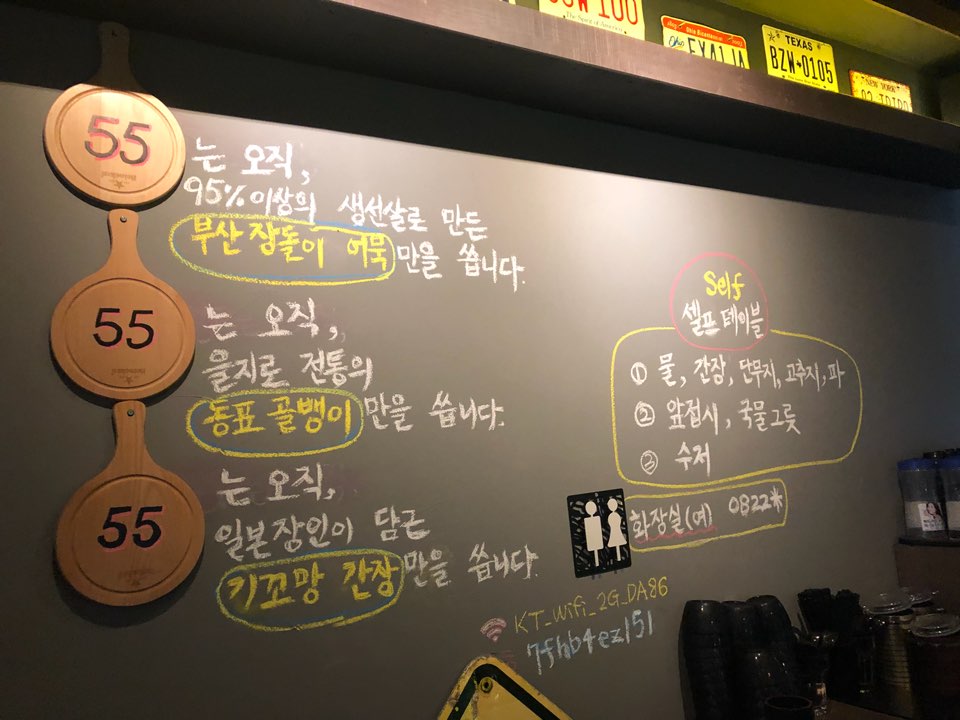 TEXAS
BZW★0105
NEW YORK
55
는 오직,
95% 이상의 생선살로 만든
부산 장돌이 어묵만을 씁니다.
55
는 오직,
을지로 전통의
동표 골뱅이만을 씁니다.
55
는 오직,
일본장인이 담근
키꼬망 간장만을 씁니다.
Self
셀프 테이블
① 물, 간장, 단무지, 고추지, 파
② 앞접시, 국물그릇
③ 수저
화장실(여) 0822*
KT_Wifi_2G_DA86
7fhb4ez151